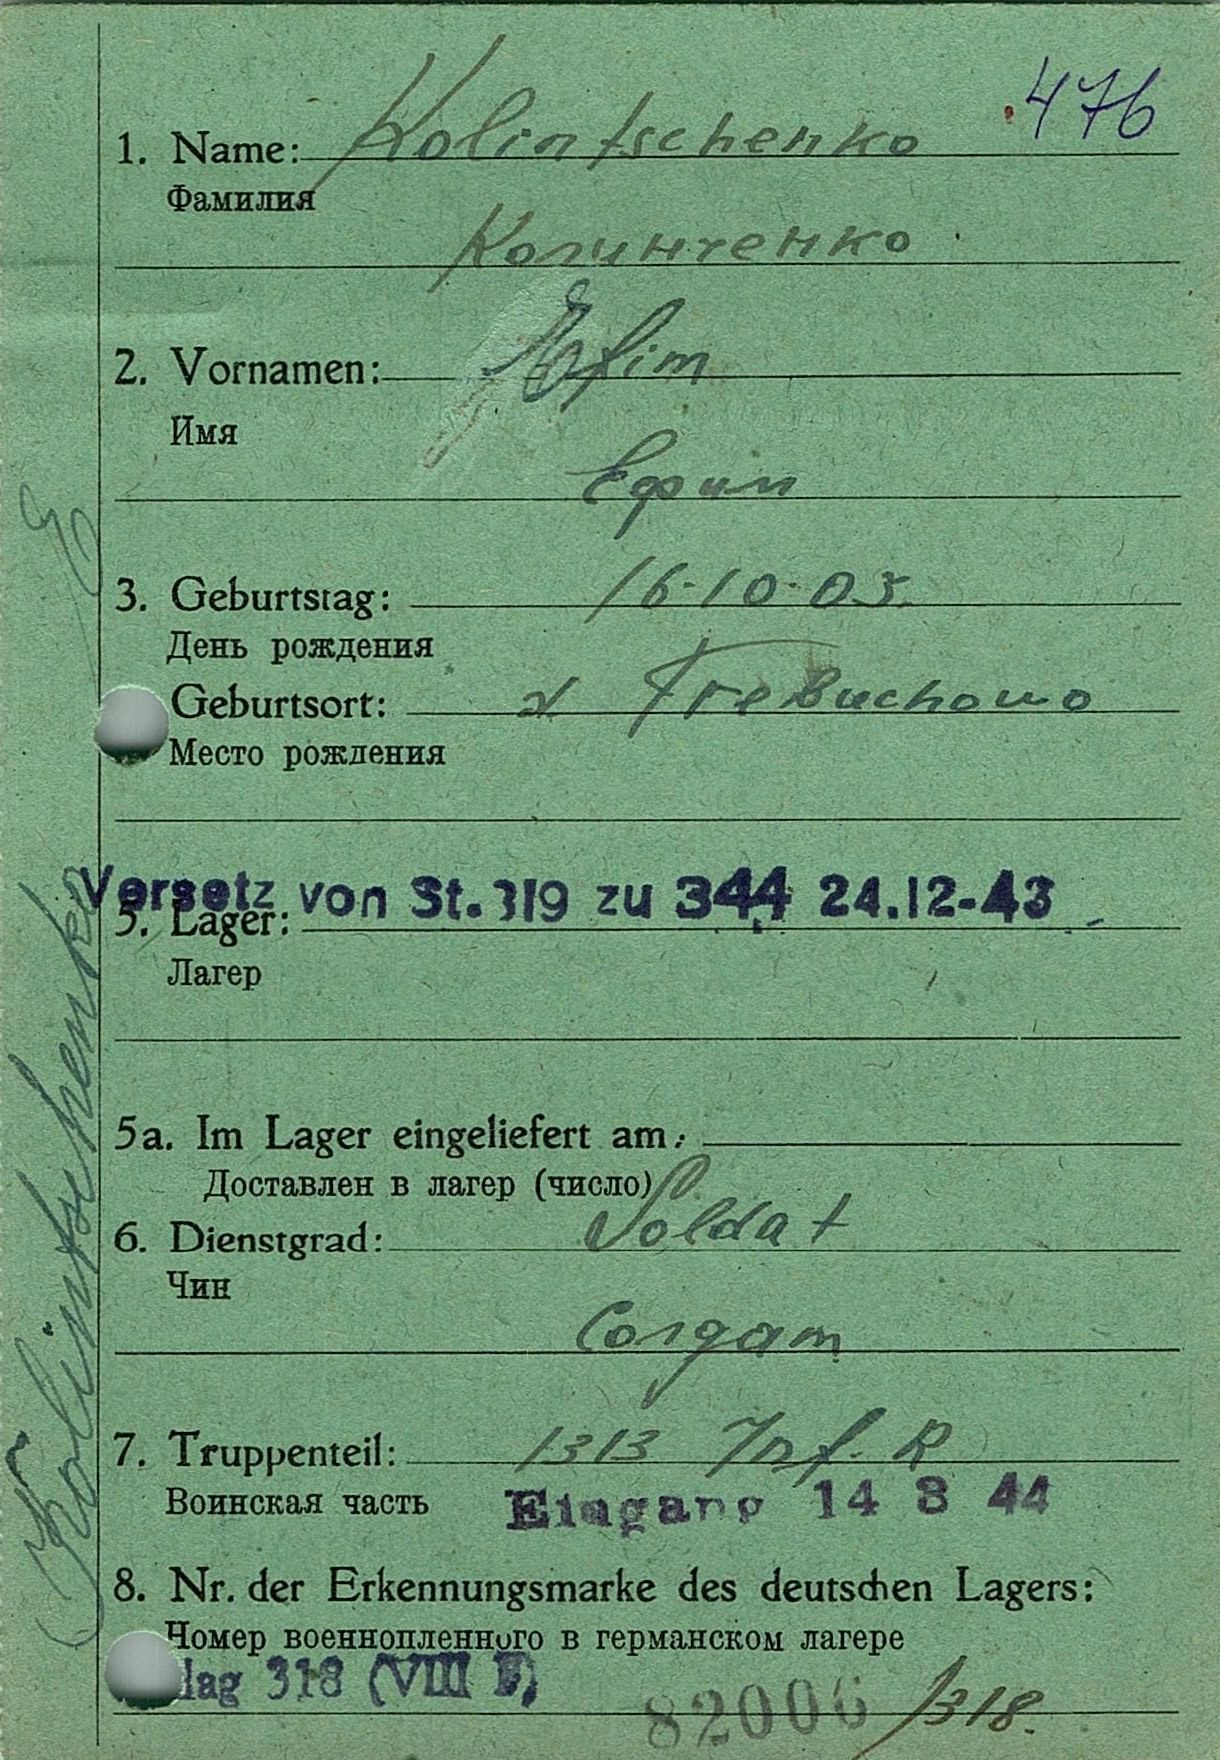 476
1. Name: Kolintschenko
Фамилия
Колинченко
2. Vornamen: Efim
Имя
Ефим
3. Geburtstag: 16.10.03.
День рождения
Geburtsort: d. Trebuchowo
Место рождения
Versetz von St. 319 zu 344 24.12-43
5. Lager:
Лагер
5a. Im Lager eingeliefert am:
Доставлен в лагер (число)
6. Dienstgrad: Soldat
Чин
Солдат
7. Truppenteil: 1313 Inf. R
Воинская часть Eingang 14 8 44
8. Nr. der Erkennungsmarke des deutschen Lagers:
Номер военнопленного в германском лагере
lag 318 (VIII F)
82006 /318.
Kolintschenko E